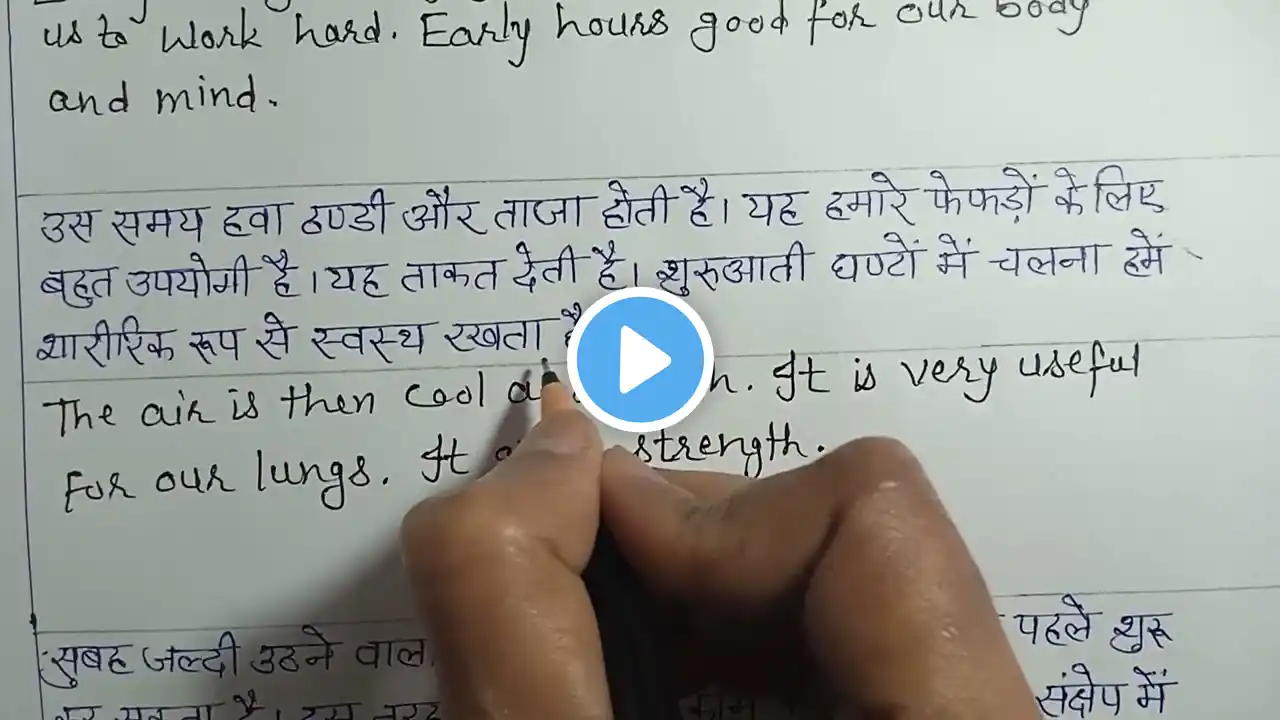 us to work hard. Early hours good for our body
and mind.
उस समय हवा ठण्डी और ताजा होती है। यह हमारे फेफड़ों के लिए
बहुत उपयोगी है। यह ताकत देती है। शुरुआती घण्टों में चलना हमें
शारीरिक रूप से स्वस्थ रखता है
The air is then cool. It is very useful
for our lungs. It strength.
सुबह जल्दी उठने पहले शुरू
संक्षेप में